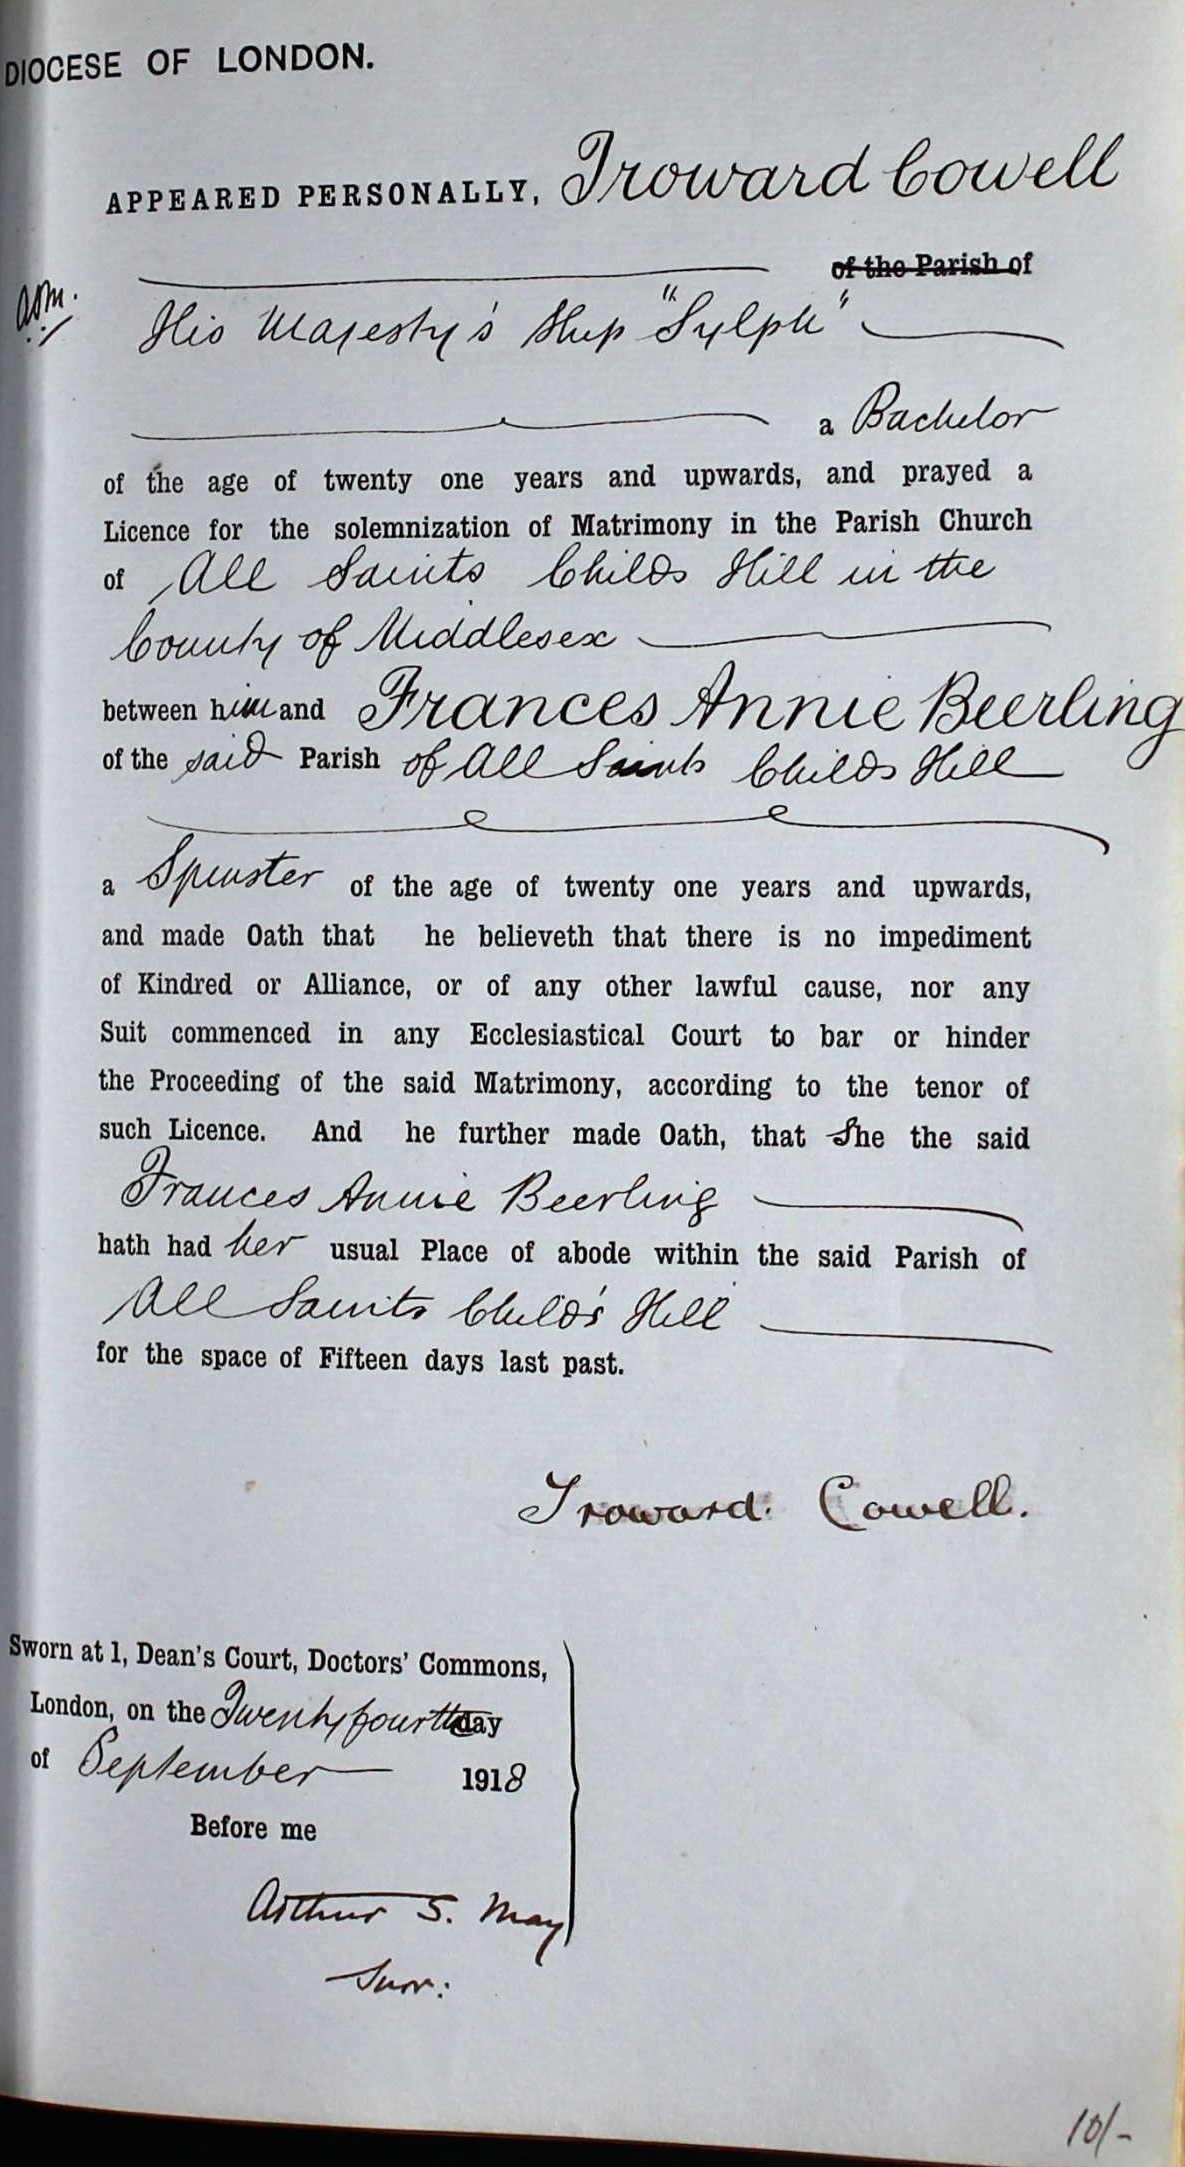 DIOCESE OF LONDON.
APPEARED PERSONALLY, Troward Cowell
of the Parish of
asm.
His Majesty's Ship "Sylph"
a Bachelor
of the age of twenty one years and upwards, and prayed a
Licence for the solemnization of Matrimony in the Parish Church
of All Saints Childs Hill in the
County of Middlesex
between him and Frances Annie Beerling
of the said Parish of All Saints Childs Hill
a Spinster of the age of twenty one years and upwards,
and made Oath that he believeth that there is no impediment
of Kindred or Alliance, or of any other lawful cause, nor any
Suit commenced in any Ecclesiastical Court to bar or hinder
the Proceeding of the said Matrimony, according to the tenor of
such Licence. And he further made Oath, that She the said
Frances Annie Beerling
hath had her usual Place of abode within the said Parish of
All Saints Child's Hill
for the space of Fifteen days last past.
Troward. Cowell.
Sworn at 1, Dean's Court, Doctors' Commons,
London, on the Twenty fourth day
of September 1918
Before me
Arthur S. May
Surr:
10/-